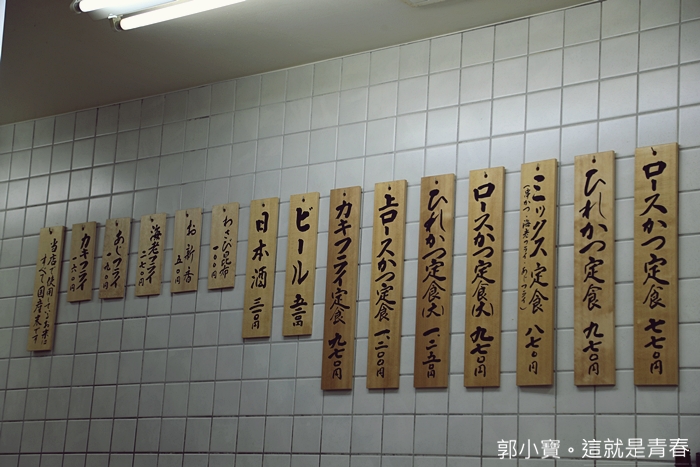 ロースかつ定食 七七〇円
ひれかつ定食 九七〇円
ミックス定食 八七〇円
ロースかつ定食(大) 九七〇円
ひれかつ定食(大) 一二五〇円
上ロースかつ定食 一二〇〇円
カキフライ定食 九七〇円
ビール 五三〇円
日本酒 三一〇円
わさび昆布 一〇〇円
お新香 五〇円
海老フライ 二七〇円
あじフライ 一九〇円
カキフライ 一六〇円
当店で使用しているお米は
すべて国産米です
郭小寶。這就是青春